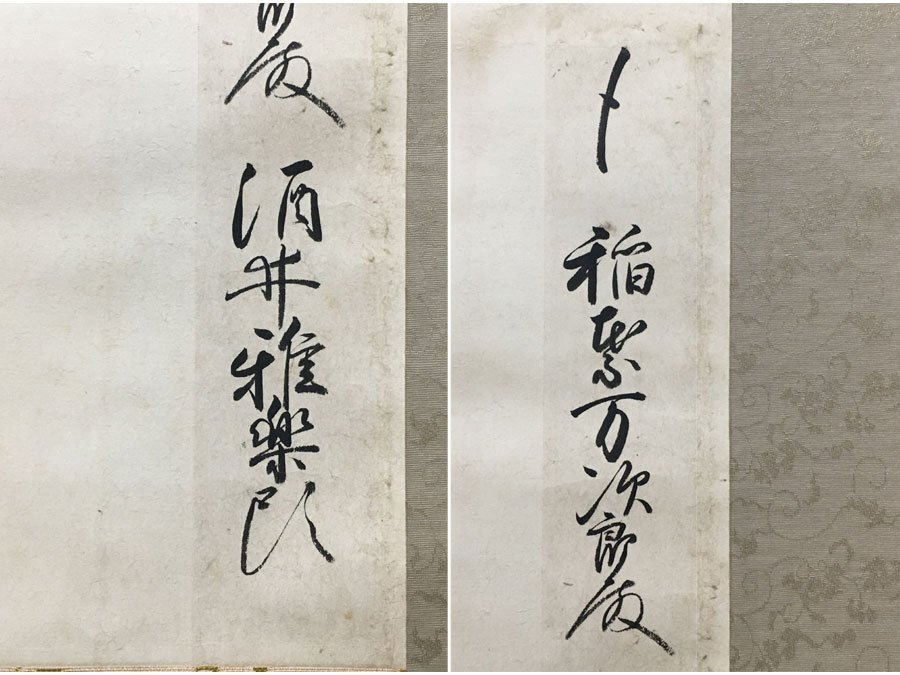 稲葉万次郎殿
郎殿 酒井雅楽頭